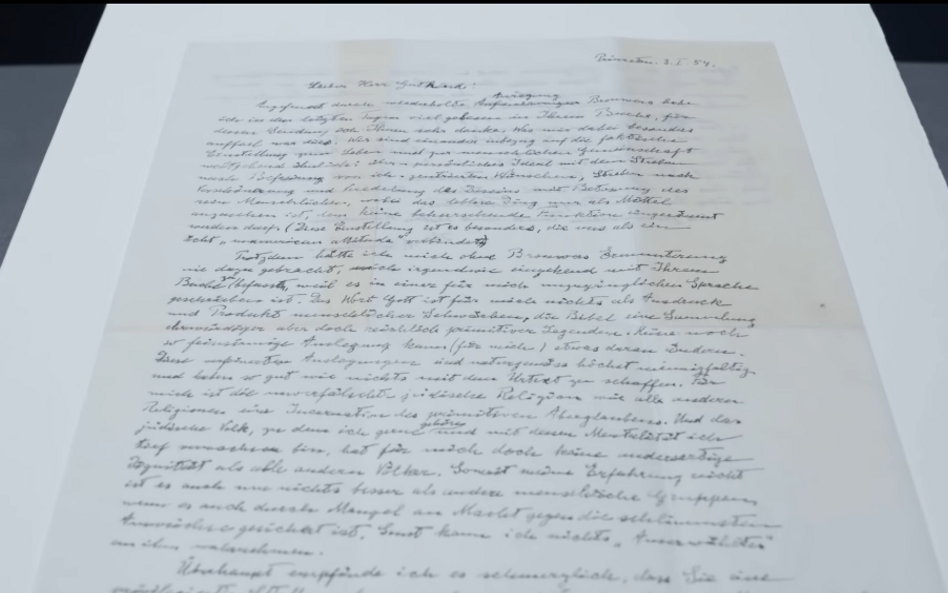 Princeton. 3. I. 54.
Lieber Herr Gutkind!
Anregung
Angefeuert durch wiederholte Brouwers habe
ich in den letzten Tagen viel gelesen in Ihrem Buche, für
dessen Sendung ich Ihnen sehr danke. Was mir dabei besonders
auffiel war dies: Wir sind einander inbezug auf die faktische
Einstellung zum Leben und zur menschlichen Gemeinschaft
weitgehend ähnlich: persönliches Ideal mit dem Streben
nach Befreiung von ich-zentrierten Wünschen, Streben nach
Verschönerung und Veredelung des Daseins mit Betonung des
rein Menschlichen, wobei das leblose Ding nur als Mittel
anzusehen ist, dem keine beherrschende Funktion eingeräumt
werden darf. (Diese Einstellung ist es besonders, die uns als ein
echt „unamerican attitude" verbindet)
Trotzdem hätte ich mich ohne Brouwers Ermunterung
nie dazu gebracht, mich irgendwie eingehend mit Ihrem
Buche zu befassen, weil es in einer für mich unzugänglichen Sprache
geschrieben ist. Das Wort Gott ist für mich nichts als Ausdruck
und Produkt menschlicher Schwächen, die Bibel eine Sammlung
ehrwürdiger aber doch reichlich primitiver Legenden. Keine noch
so feinsinnige Auslegung kann (für mich) etwas daran ändern.
Diese verfeinerten Auslegungen sind naturgemäss höchst mannigfaltig
und haben so gut wie nichts mit dem Urtext zu schaffen. Für
mich ist die unverfälschte jüdische Religion wie alle anderen
Religionen eine Incarnation des primitiven Aberglaubens. Und das
jüdische Volk, zu dem ich gerne gehöre und mit dessen Mentalität ich
tief verwachsen bin, hat für mich doch keine andersartige
Dignität als alle anderen Völker. Soweit meine Erfahrung reicht
ist es auch um nichts besser als andere menschliche Gruppen,
wenn es auch durch Mangel an Macht gegen die schlimmsten
Auswüchse gesichert ist. Sonst kann ich nichts „Auserwähltes"
an ihm wahrnehmen.
Überhaupt empfinde ich es schmerzlich, dass Sie eine